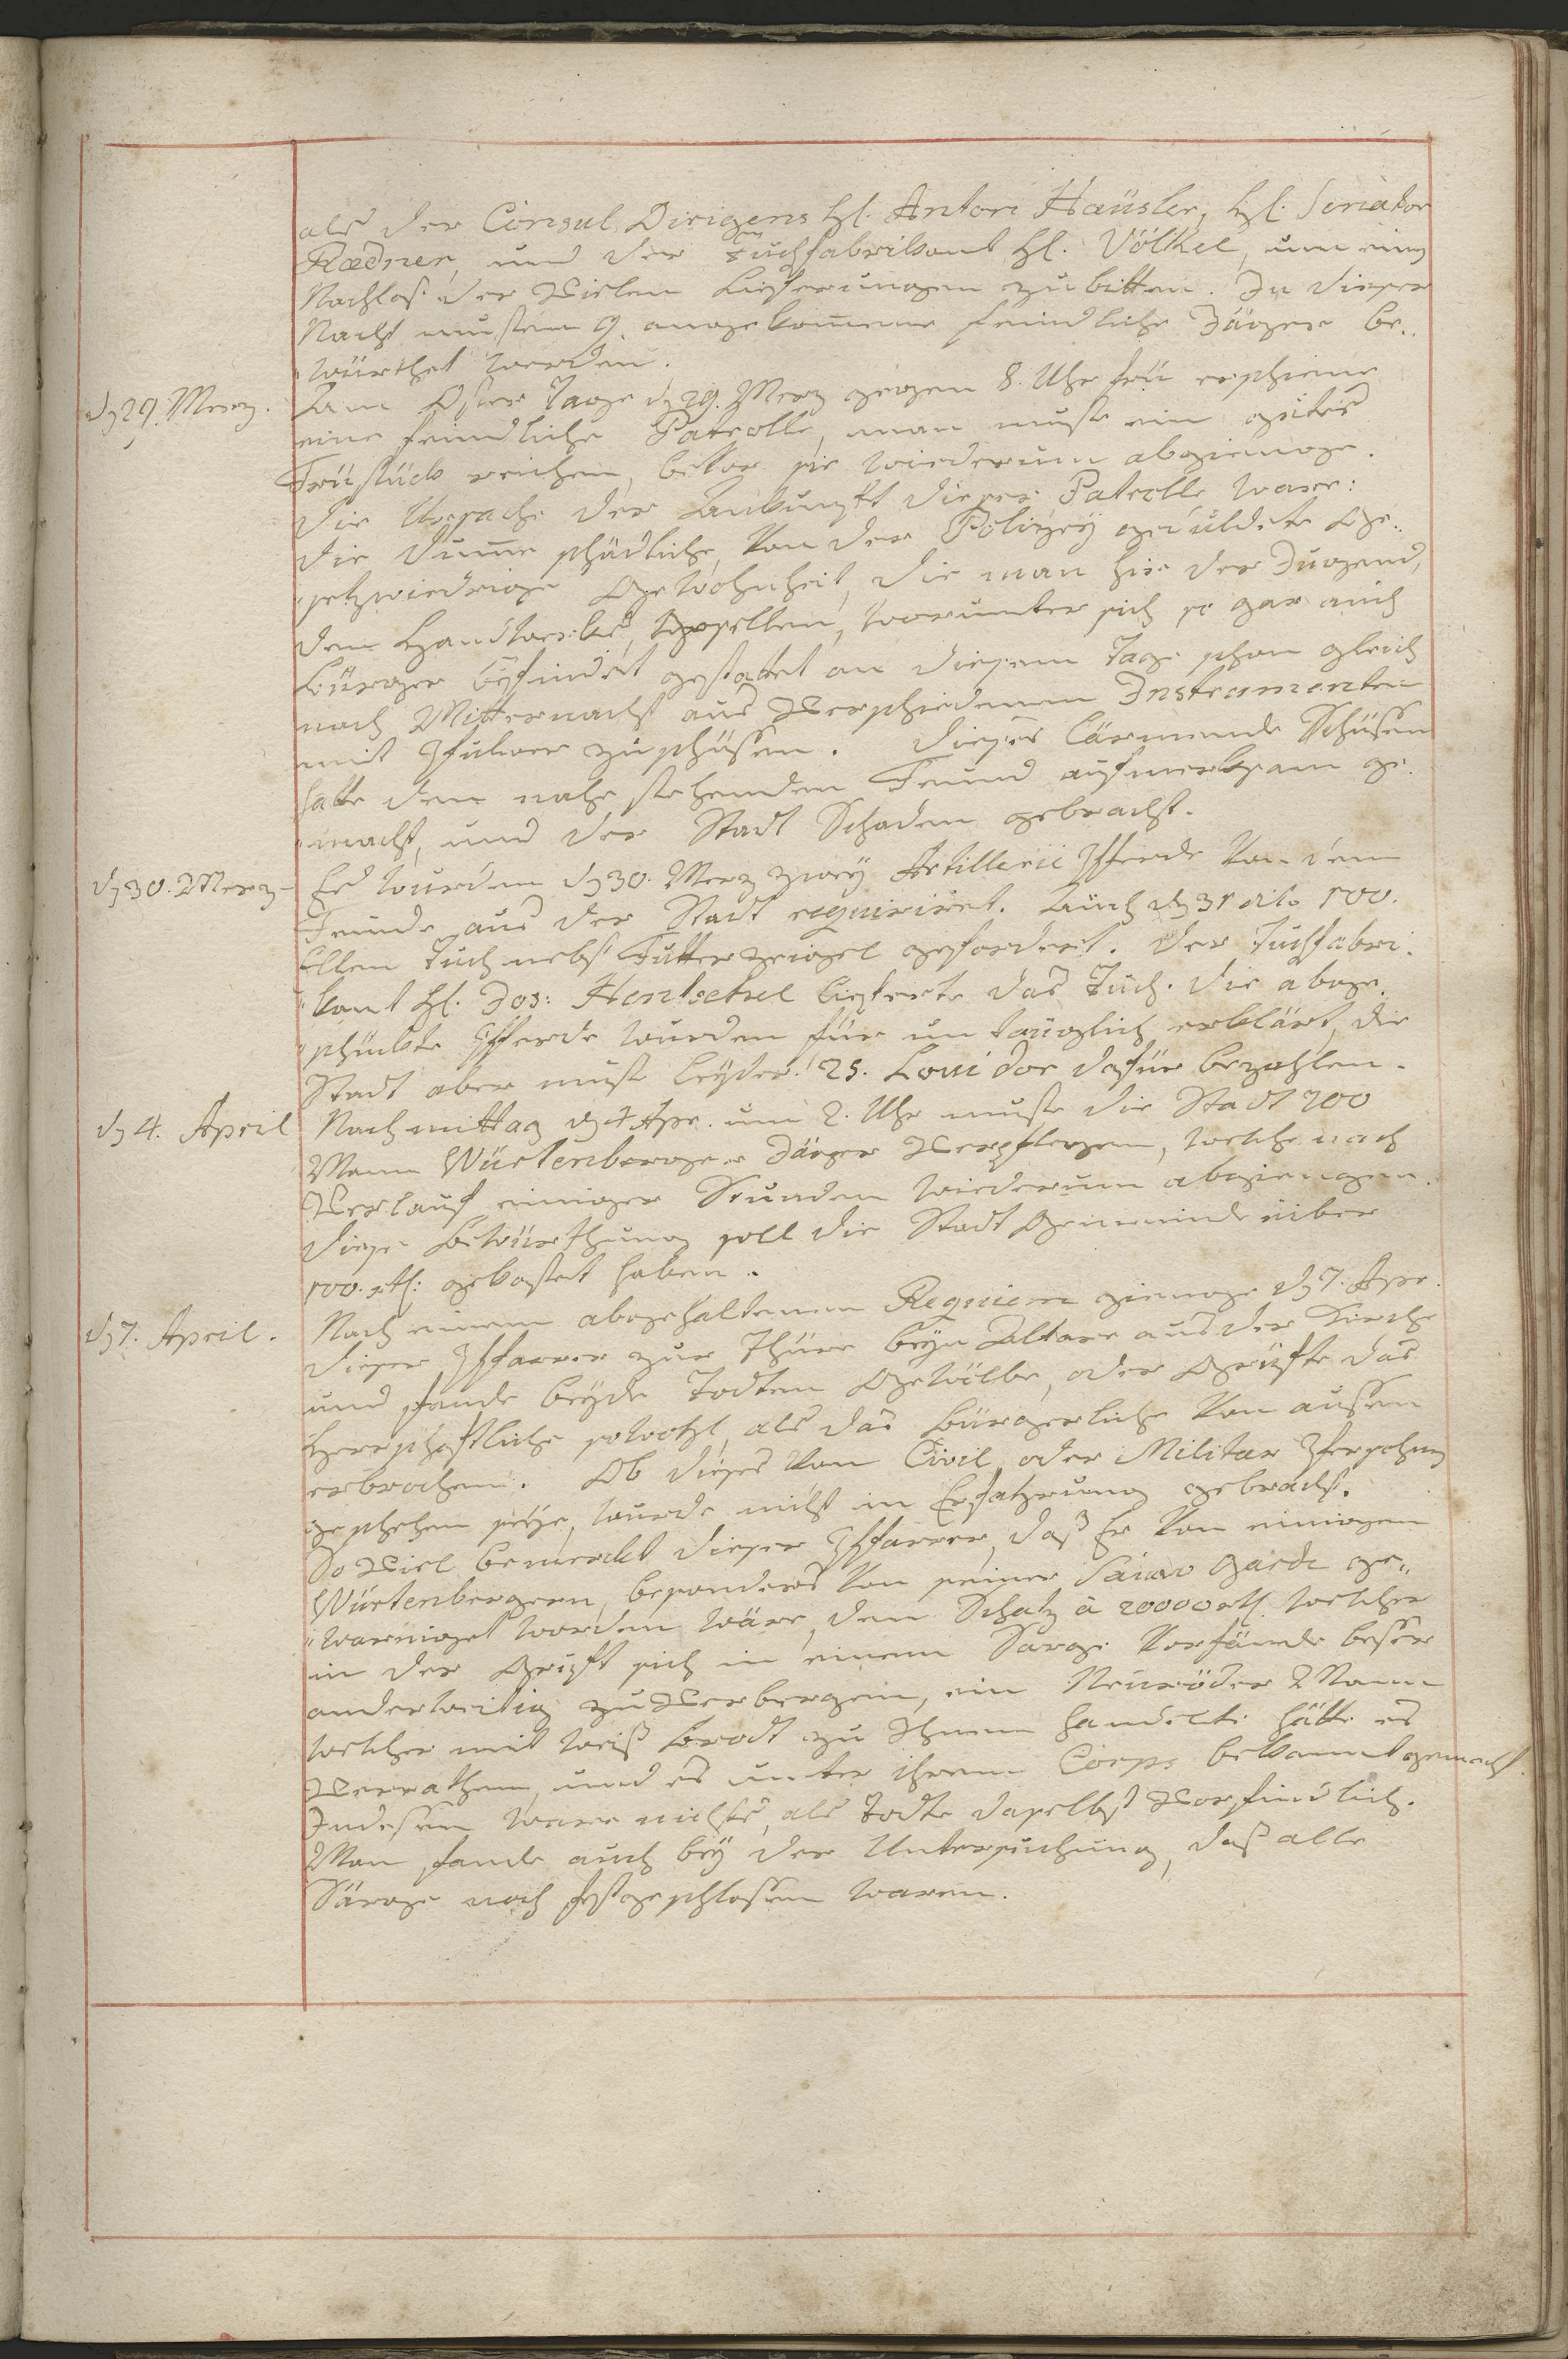 als der Consul Dirigens Hl. Anton Haüsler, Hl. Senator
Rædner, und der Tuchfabrikant Hl. Völkel, um einen
Nachlas der Vielen Lieferungen zu bitten. In dieser
Nacht musten 9. angekom̄ene feindliche Jäger be„
„würthet werden.
dn 29. Merz. Am Oster Tage dn 29. Merz gegen 8. Uhr frü erschiene
eine feindliche Patrolle, man muste ein gutes
Früstück reichen, bevor sie wiederum abgienge.
Die Ursache der Ankunft dieser Patrolle ware:
die dum̄e schädliche, von der Polizey geduldete Ge„
„setzwiedrige Gewohnheit, die man hier der Jugend,
den Handwerks Gesellen, worunter sich so gar auch
Bürger befindet gestattet an diesem Tage schon gleich
nach Mitternacht aus Verschiedenen Instrumenten
mit Pulver zu schüssen. Dieses lärmende Schüssen
hatte den nahe stehenden Feind aufmerksam ge„
„macht, und der Stadt Schaden gebracht.
dn 30. Merz Es wurden dn 30. Merz zwey Artillerie Pferde von dem
Feinde aus der Stadt requiriret. Auch dn 31 dito 100.
Ellen Tuch nebst Futter gefordert. Der Tuchfabri„
„kant Hl. Jos: Hentschel lieferte das Tuch. Die abge„
„schickte Pferde wurden für untauglich erklärt, die
Stadt aber muste leyder! 25. Loui dor dafür bezahlen.
dn 4. April Nachmittag dn 4 Apr. um 2. Uhr muste die Stadt 200
Mann Würtenberger Jäger Verpflegen, welche nach
Verlauf einiger Stunden wiederum abgiengen.
Diese Bewürthung soll die Stadt Gemeinde über
100. rtl: gekostet haben.
dn 7. April. Nach einem abgehaltenen Requiem gienge dn 7. Apr.
dieser Pfarrer zur Thüre beyn Altare aus der Kirche
und fande beyde Todten Gewölbe, oder Grüfte das
Herrschaftliche sowohl, als das Bürgerliche von aussen
erbrochen. Ob dieses von Civil oder Militar Persohnen
geschehen seye, wurde nicht in Erfahrung gebracht.
So Viel bemerckt dieser Pfarrer, daß Er von einigen
Würtenbergern, besonders von seiner Sauve Garde ge„
„warniget worden wäre, den Schatz à 20000 rtl. welcher
in der Gruft sich in einem Sarge vorfände besser
anderweitig zu Verbergen, ein Neuröder Mann
welcher mit weiß Brodt zu Ihnen handelte hätte es
Verrathen, und es unter ihrem Corps bekannt gemacht.
Indessen ware nichts, als Todte daselbst Vorfindlich.
Man fande auch bey der Untersuchung, daß alle
Särge noch fest geschlossen waren.